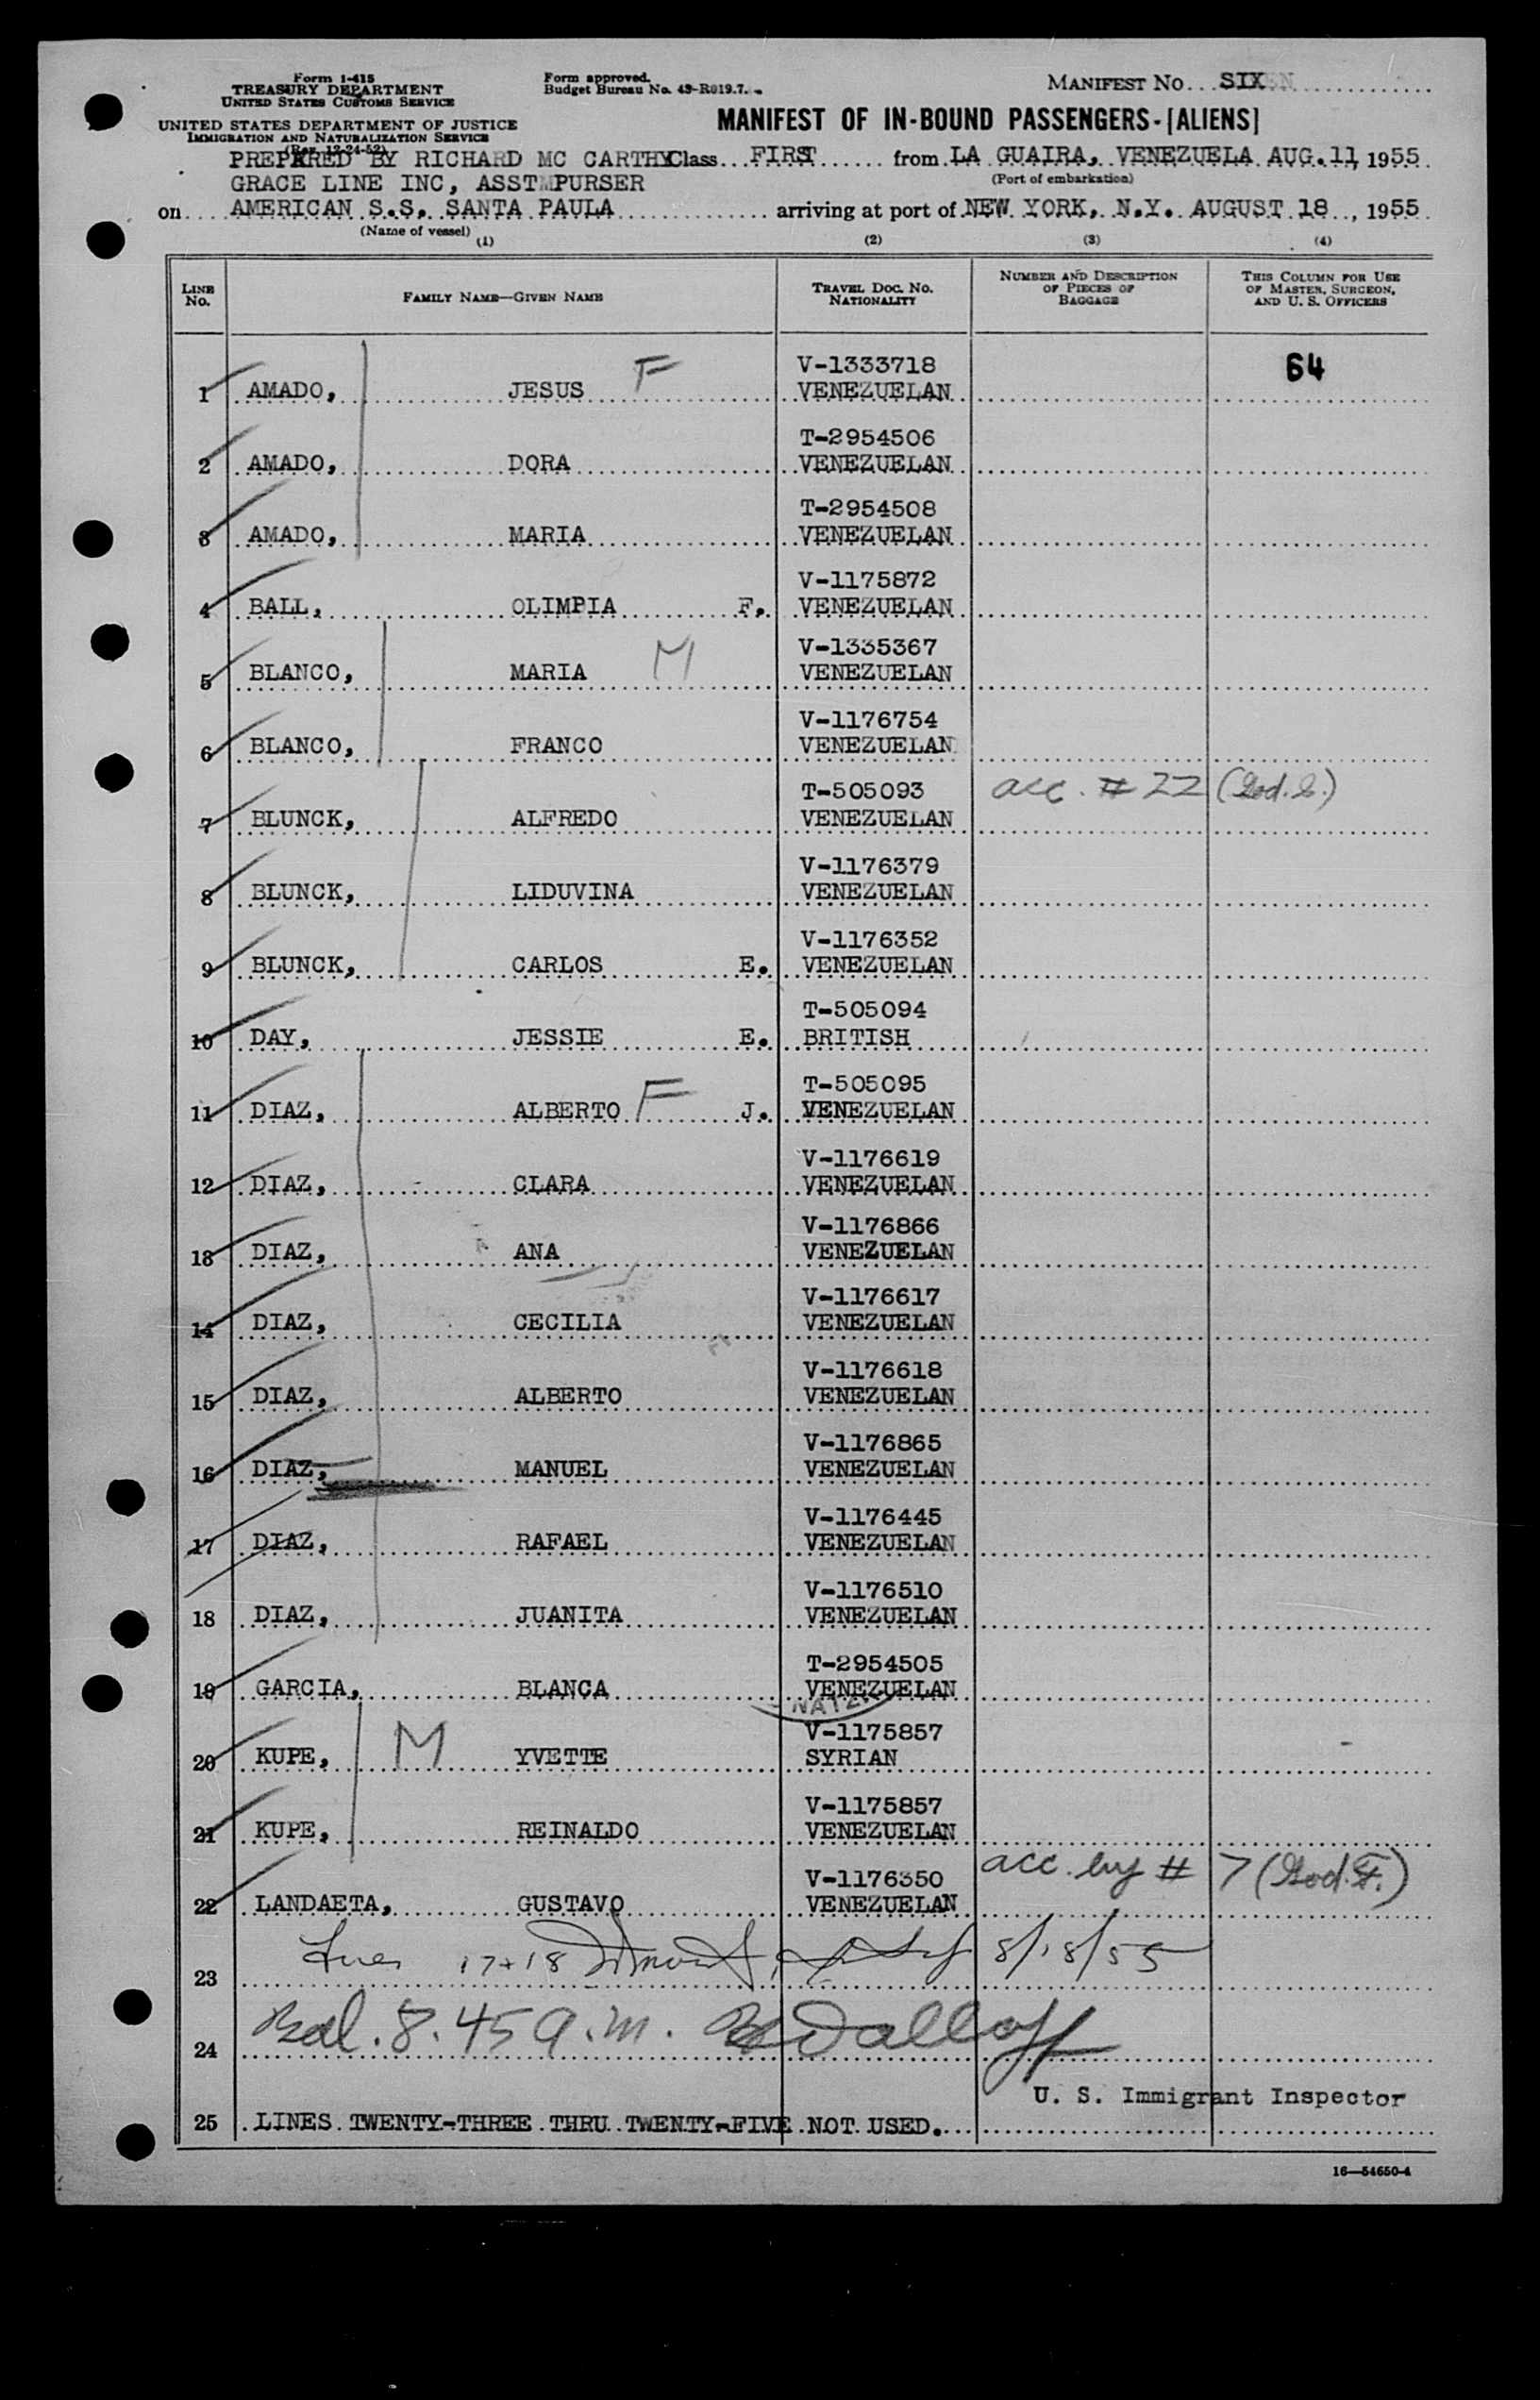 Form I-415
TREASURY DEPARTMENT
UNITED STATES CUSTOMS SERVICE
UNITED STATES DEPARTMENT OF JUSTICE
IMMIGRATION AND NATURALIZATION SERVICE
(Rev. 12-24-52)
Form approved.
Budget Bureau No. 43-R019.7.
MANIFEST NO. SIX
MANIFEST OF IN-BOUND PASSENGERS-[ALIENS]
PREPARED BY RICHARD MC CARTHY Class FIRST from LA GUAIRA, VENEZUELA AUG. 11, 1955
GRACE LINE INC, ASST PURSER (Port of embarkation)
on AMERICAN S.S. SANTA PAULA arriving at port of NEW YORK, N.Y. AUGUST 18, 1955
(Name of vessel)
(1) (2) (3) (4)
LINE NO. FAMILY NAME—GIVEN NAME TRAVEL DOC. NO. NATIONALITY NUMBER AND DESCRIPTION OF PIECES OF BAGGAGE THIS COLUMN FOR USE OF MASTER, SURGEON, AND U. S. OFFICERS
V-1333718 64
1 AMADO, JESUS F VENEZUELAN
T-2954506
2 AMADO, DORA VENEZUELAN
T-2954508
3 AMADO, MARIA VENEZUELAN
V-1175872
4 BALL, OLIMPIA F. VENEZUELAN
V-1335367
5 BLANCO, MARIA M VENEZUELAN
V-1176754
6 BLANCO, FRANCO VENEZUELAN
T-505093 acc. # 22
7 BLUNCK, ALFREDO VENEZUELAN
V-1176379
8 BLUNCK, LIDUVINA VENEZUELAN
V-1176352
9 BLUNCK, CARLOS E. VENEZUELAN
T-505094
10 DAY, JESSIE E. BRITISH
T-505095
11 DIAZ, ALBERTO F J. VENEZUELAN
V-1176619
12 DIAZ, CLARA VENEZUELAN
V-1176866
13 DIAZ, ANA VENEZUELAN
V-1176617
14 DIAZ, CECILIA VENEZUELAN
V-1176618
15 DIAZ, ALBERTO VENEZUELAN
V-1176865
16 DIAZ, MANUEL VENEZUELAN
V-1176445
17 DIAZ, RAFAEL VENEZUELAN
V-1176510
18 DIAZ, JUANITA VENEZUELAN
T-2954505
19 GARCIA, BLANCA VENEZUELAN
V-1175857
20 KUPE, M YVETTE SYRIAN
V-1175857
21 KUPE, REINALDO VENEZUELAN
V-1176350 acc. by # 7 (God. F.)
22 LANDAETA, GUSTAVO VENEZUELAN
23 lines 17+18 8/18/55
24 Bal. 8.45 a.m.
U. S. Immigrant Inspector
25 LINES TWENTY-THREE THRU TWENTY-FIVE NOT USED.
16—54650-4